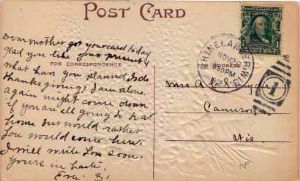 POST CARD
FOR CORRESPONDENCE
Dear mother got your card today
Glad you like your present
what have you planned to do
thanksgiving? I am alone
again might come down
if you all going to be
home but would rather
you would come here.
I will write you soon
yours in haste
RHINELANDER WIS.
PM
1
Mrs A
Cameron
Wis.